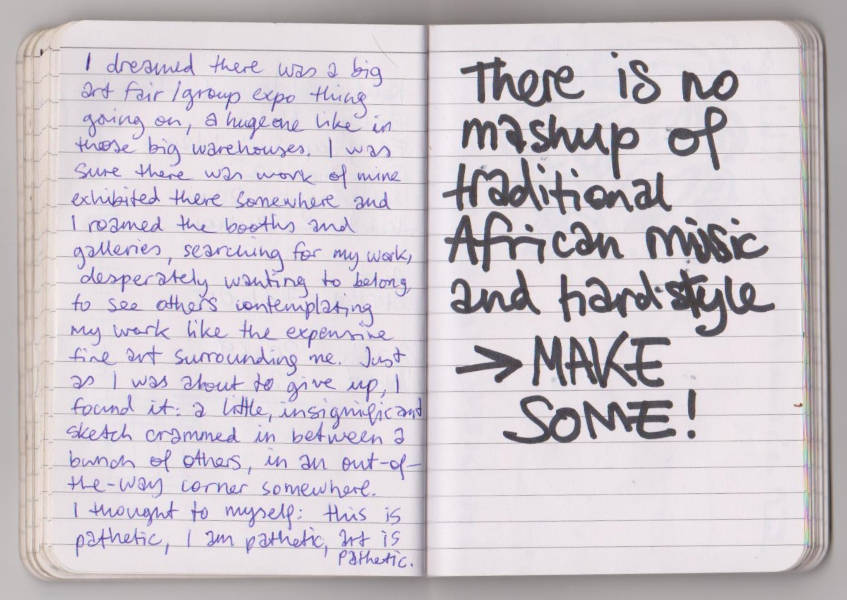 I dreamed there was a big
art fair/group expo thing
going on, a huge one like in
those big warehouses. I was
sure there was work of mine
exhibited there somewhere and
I roamed the booths and
galleries, searching for my work,
desperately wanting to belong,
to see others contemplating
my work like the expensive
fine art surrounding me. Just
as I was about to give up, I
found it: a little, insignificant
sketch crammed in between a
bunch of others, in an out-of-
the-way corner somewhere.
I thought to myself: this is
pathetic, I am pathetic, art is
pathetic.
There is no
mashup of
traditional
African music
and hardstyle
→ MAKE
SOME!